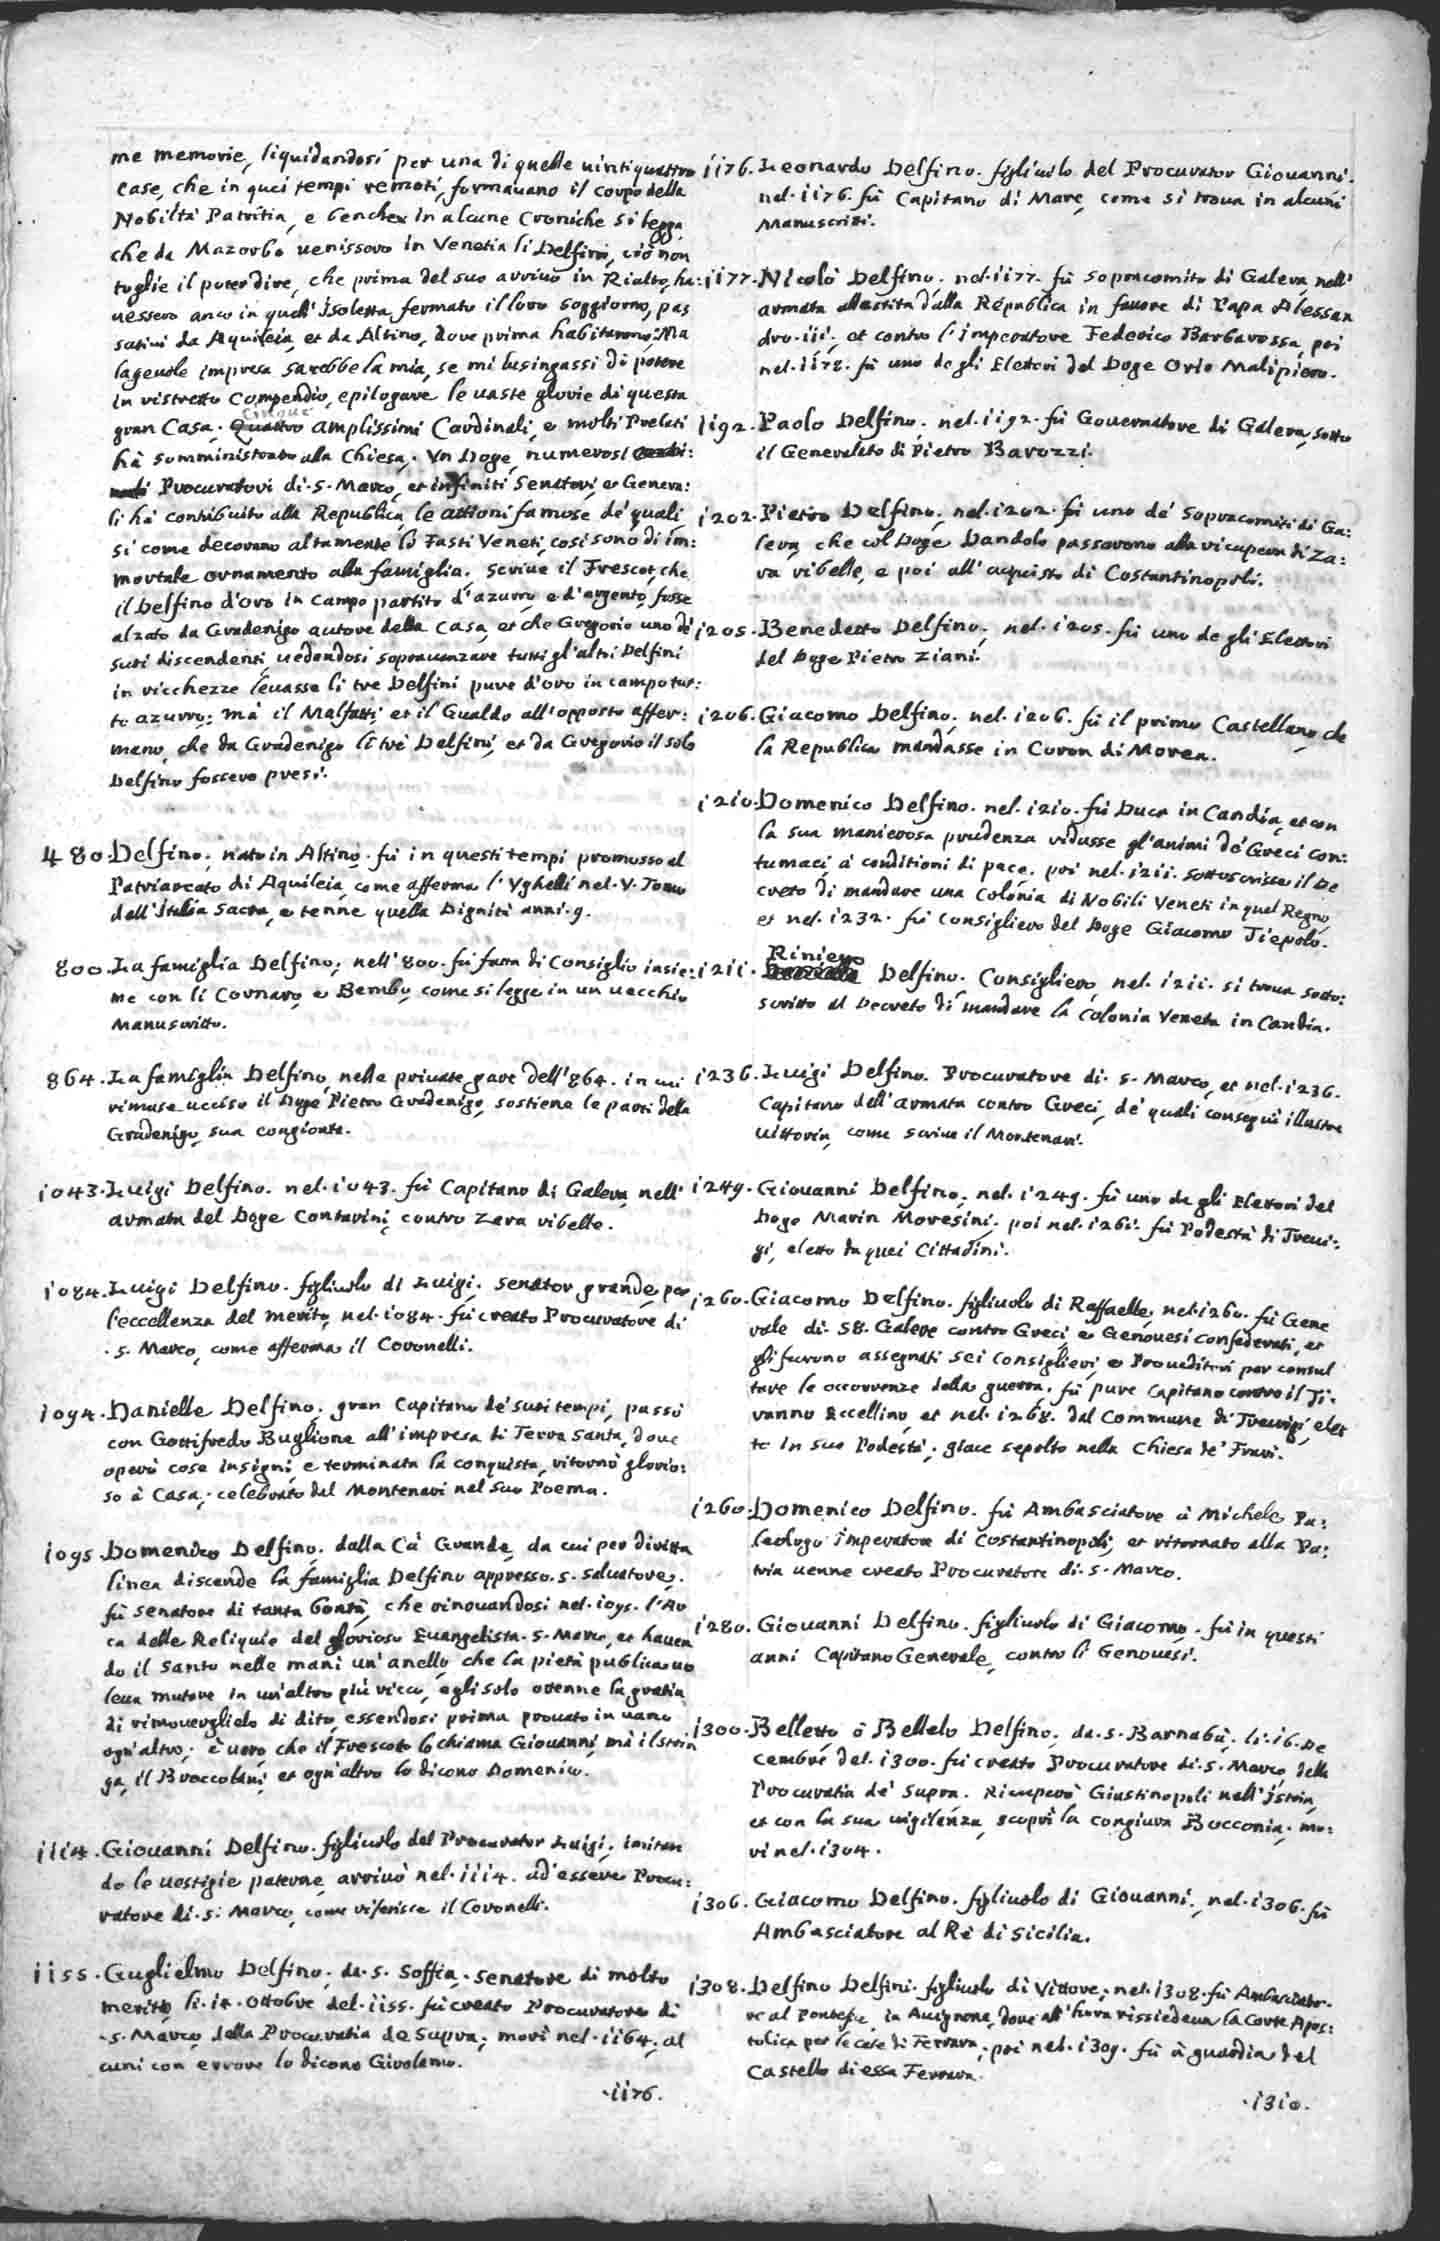 me memorie, liquidandosi per una di quelle uintiquattro
Case, che in quei tempi remoti, formauano il corpo della
Nobiltà Patritia, e benche in alcune Croniche si legga
che da Mazorbo uenissero in Venetia li Delfini, ciò non
toglie il poter dire, che prima del suo arriuo in Rialto, ha:
uessero anco in quell'Isoletta, fermato il loro soggiorno, pas
sativi da Aquileia, et da Altino, doue prima habitarono: Ma
lageuole impresa sarebbe la mia, se mi lusingassi di potere
in ristretto Compendio, epilogare le uaste glorie di questa
gran Casa. Cinque amplissimi Cardinali, e molti Prelati
hà somministrato alla Chiesa. Vn Doge, numerosi
Procuratori di S. Marco, et infiniti Senatori, et Genera:
li hà contribuito alla Republica, le attioni famose de' quali
si come decorano altamente li Fasti Veneti, così sono di im:
mortale ornamento alla famiglia. Scriue il Frescot, che
il Delfino d'oro in Campo partito d'azurro, e d'argento, fosse
alzato da Gradenigo autore della Casa, et che Gregorio uno de'
suoi discendenti, uedendosi soprauanzare tutti gl'altri Delfini
in ricchezze leuasse li tre Delfini pure d'oro in campo tut:
to azurro: mà il Malfatti et il Gualdo all'opposto affer:
mano, che da Gradenigo li tre Delfini, et da Gregorio il solo
Delfino fossero presi.
480. Delfino, nato in Altino. fù in questi tempi promosso al
Patriarcato di Aquileia, come afferma l'Vghelli nel V. Tomo
dell'Italia Sacra, e tenne quella Dignità anni 9.
800. La famiglia Delfino, nell'800. fù fatta di Consiglio insie:
me con li Cornaro, e Bembo, come si legge in un uecchio
Manuscritto.
864. La famiglia Delfino, nelle priuate gare dell'864. in cui
rimase ucciso il Doge Pietro Gradenigo, sostiene le parti della
Gradenigo, sua congionta.
1043. Luigi Delfino. nel 1043. fù Capitano di Galera, nell'
armata del Doge Contarini, contro Zara ribelle.
1084. Luigi Delfino. figliuolo di Luigi. Senator grande, per
l'eccellenza del merito, nel 1084. fù creato Procuratore di
S. Marco, come afferma il Coronelli.
1094. Danielle Delfino. gran Capitano de' suoi tempi, passò
con Gottifredo Buglione all'impresa di Terra Santa, doue
operò cose insigni, e terminata la conquista, ritornò glorio:
so à Casa, celebrato dal Montenari nel suo Poema.
1095 Domenico Delfino. dalla Cà Grande, da cui per diritta
linea discende la famiglia Delfino appresso S. Saluatore,
fù Senatore di tanta bontà, che rinouandosi nel 1095. l'Ar
ca delle Reliquie del glorioso Euangelista S. Marco, et hauen
do il Santo nelle mani un'anello, che la pietà publica uo
leua mutare in un'altro più ricco, egli solo ottenne la gratia
di rimouerglielo di dito, essendosi prima prouato in uano
ogn'altro. è uero, che il Frescoto lo chiama Giouanni, mà il Strin
ga, il Broccolani, et ogn'altro lo dicono Domenico.
1114. Giouanni Delfino. figliuolo del Procurator Luigi, imitan
do le uestigie paterne, arriuò nel 1114. ad'essere Procu:
ratore di S. Marco, come riferisce il Coronelli.
1155. Guglielmo Delfino. da S. Soffia. Senatore di molto
merito, li 14. Ottobre del 1155. fù creato Procuratore di
S. Marco, della Procuratia de Supra, morì nel 1164, al
cuni con errore lo dicono Girolamo.
1176.
1176. Leonardo Delfino. figliuolo del Procurator Giouanni.
nel 1176. fù Capitano di Mare, come si troua in alcuni
Manuscritti.
1177. Nicolò Delfino. nel 1177. fù Sopracomito di Galera, nell'
armata allestita dalla Republica in fauore di Papa Alessan
dro III, et contro l'imperatore Federico Barbarossa, poi
nel 1178. fù uno degli Elettori del Doge Orio Malipiero.
1192. Paolo Delfino. nel 1192. fù Gouernatore di Galera, sotto
il Generalato di Pietro Barozzi.
1202. Pietro Delfino, nel 1202. fù uno de' Sopracomiti di Ga:
lera, che col Doge Dandolo passarono alla ricupera di Za:
ra ribelle, e poi all'acquisto di Costantinopoli.
1205. Benedetto Delfino, nel 1205. fù uno de gli Elettori
del Doge Pietro Ziani.
1206. Giacomo Delfino, nel 1206. fù il primo Castellano, che
la Republica mandasse in Coron di Morea.
1210. Domenico Delfino. nel 1210. fù Duca in Candia, et con
la sua manierosa prudenza ridusse gl'animi de' Greci con:
tumaci à conditioni di pace, poi nel 1211. sottoscrisse il De
creto di mandare una Colonia di Nobili Veneti in quel Regno,
et nel 1232. fù Consigliero del Doge Giacomo Tiepolo.
1211. Riniero Delfino. Consigliero, nel 1211. si troua sotto:
scritto al Decreto di mandare la Colonia Veneta in Candia.
1236. Luigi Delfino. Procuratore di S. Marco, et nel 1236.
Capitano dell'armata contro Greci, de' quali conseguì illustre
uittoria, come scriue il Montenari.
1249. Giouanni Delfino, nel 1249. fù uno de gli Elettori del
Doge Marin Moresini, poi nel 1261. fù Podestà di Treui:
gi, eletto da quei Cittadini.
1260. Giacomo Delfino. figliuolo di Raffaelle, nel 1260. fù Gene
rale di 58. Galere contro Greci, e Genouesi confederati, et
gli furono assegnati sei Consiglieri, e Proueditori per consul
tare le occorrenze della guerra. fù pure Capitano contro il Ti:
ranno Eccellino, et nel 1268. dal Commune di Treuigi, elet
to in suo Podestà. giace sepolto nella Chiesa de' Frari.
1260. Domenico Delfino. fù Ambasciatore à Michele Pa:
leologo imperatore di Costantinopoli, et ritornato alla Pa:
tria uenne creato Procuratore di S. Marco.
1280. Giouanni Delfino. figliuolo di Giacomo. fù in questi
anni Capitano Generale, contro li Genouesi.
1300. Belletto ò Bellelo Delfino, da S. Barnabà, li 16. De
cembre del 1300. fù creato Procuratore di S. Marco, della
Procuratia de' Supra. Ricuperò Giustinopoli nell'Istria,
et con la sua uigilenza, scoprì la congiura Bocconia, mo:
ri nel 1304.
1306. Giacomo Delfino. figliuolo di Giouanni, nel 1306. fù
Ambasciatore al Rè di Sicilia.
1308. Delfino Delfini. figliuolo di Vittore, nel 1308. fù Ambasciato:
re al Pontefice, in Auignone, doue all'hora rissiedeua la Corte Apos:
tolica per le cose di Ferrara, poi nel 1309. fù à guardia del
Castello di essa Ferrara.
1310.